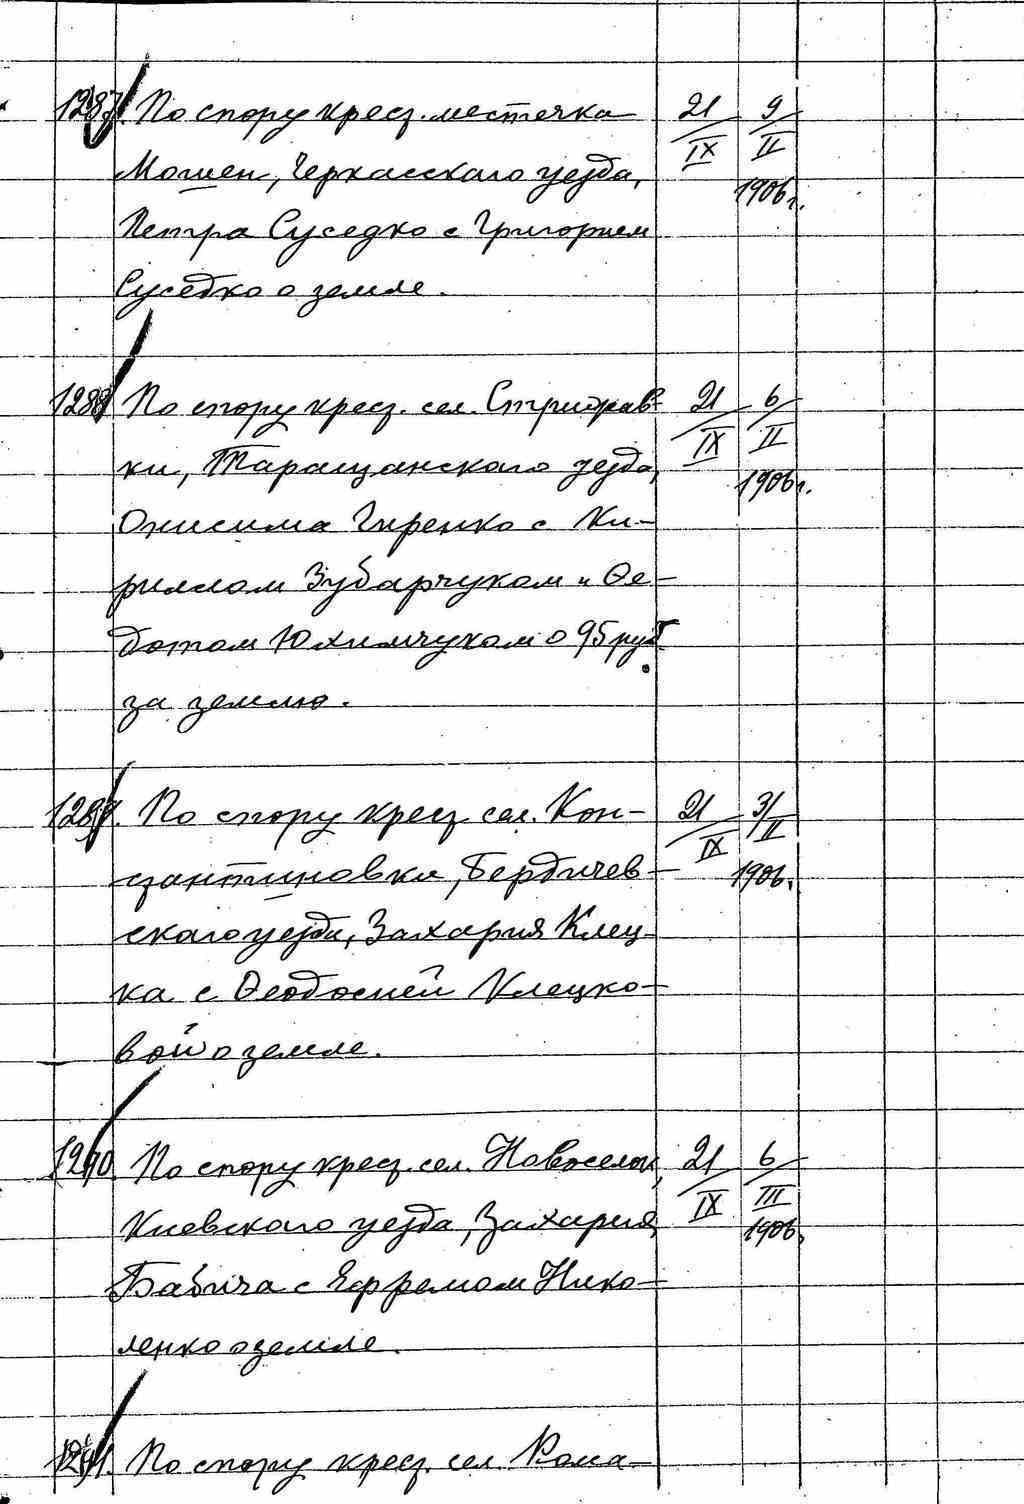 1287. По спору крест. местечка 21/IX 9/II
Мошен, Черкасского уезда, 1906 г.
Петра Суседко с Григорием
Суседко о земле.
1288 По спору крест. сел. 21/IX 6/II
ки, Таращанского уезда, 1906 г.
Онисима Гиренко с Ки-
риллом Зубарчуком и Фе-
дотом Юхимчуком о 95 руб.
за землю.
1289. По спору крест. сел. Кон- 21/IX 3/II
стантиновки, Бердичев- 1906.
ского уезда, Захария Клец-
ка с Феодосией Клецко-
вой о земле.
1290. По спору крест. сел. Новоселок, 21/IX 6/III
Киевского уезда, Захария 1906.
Бабича с Ефремом Нико-
ленко о земле.
1291. По спору крест. сел. Рома-